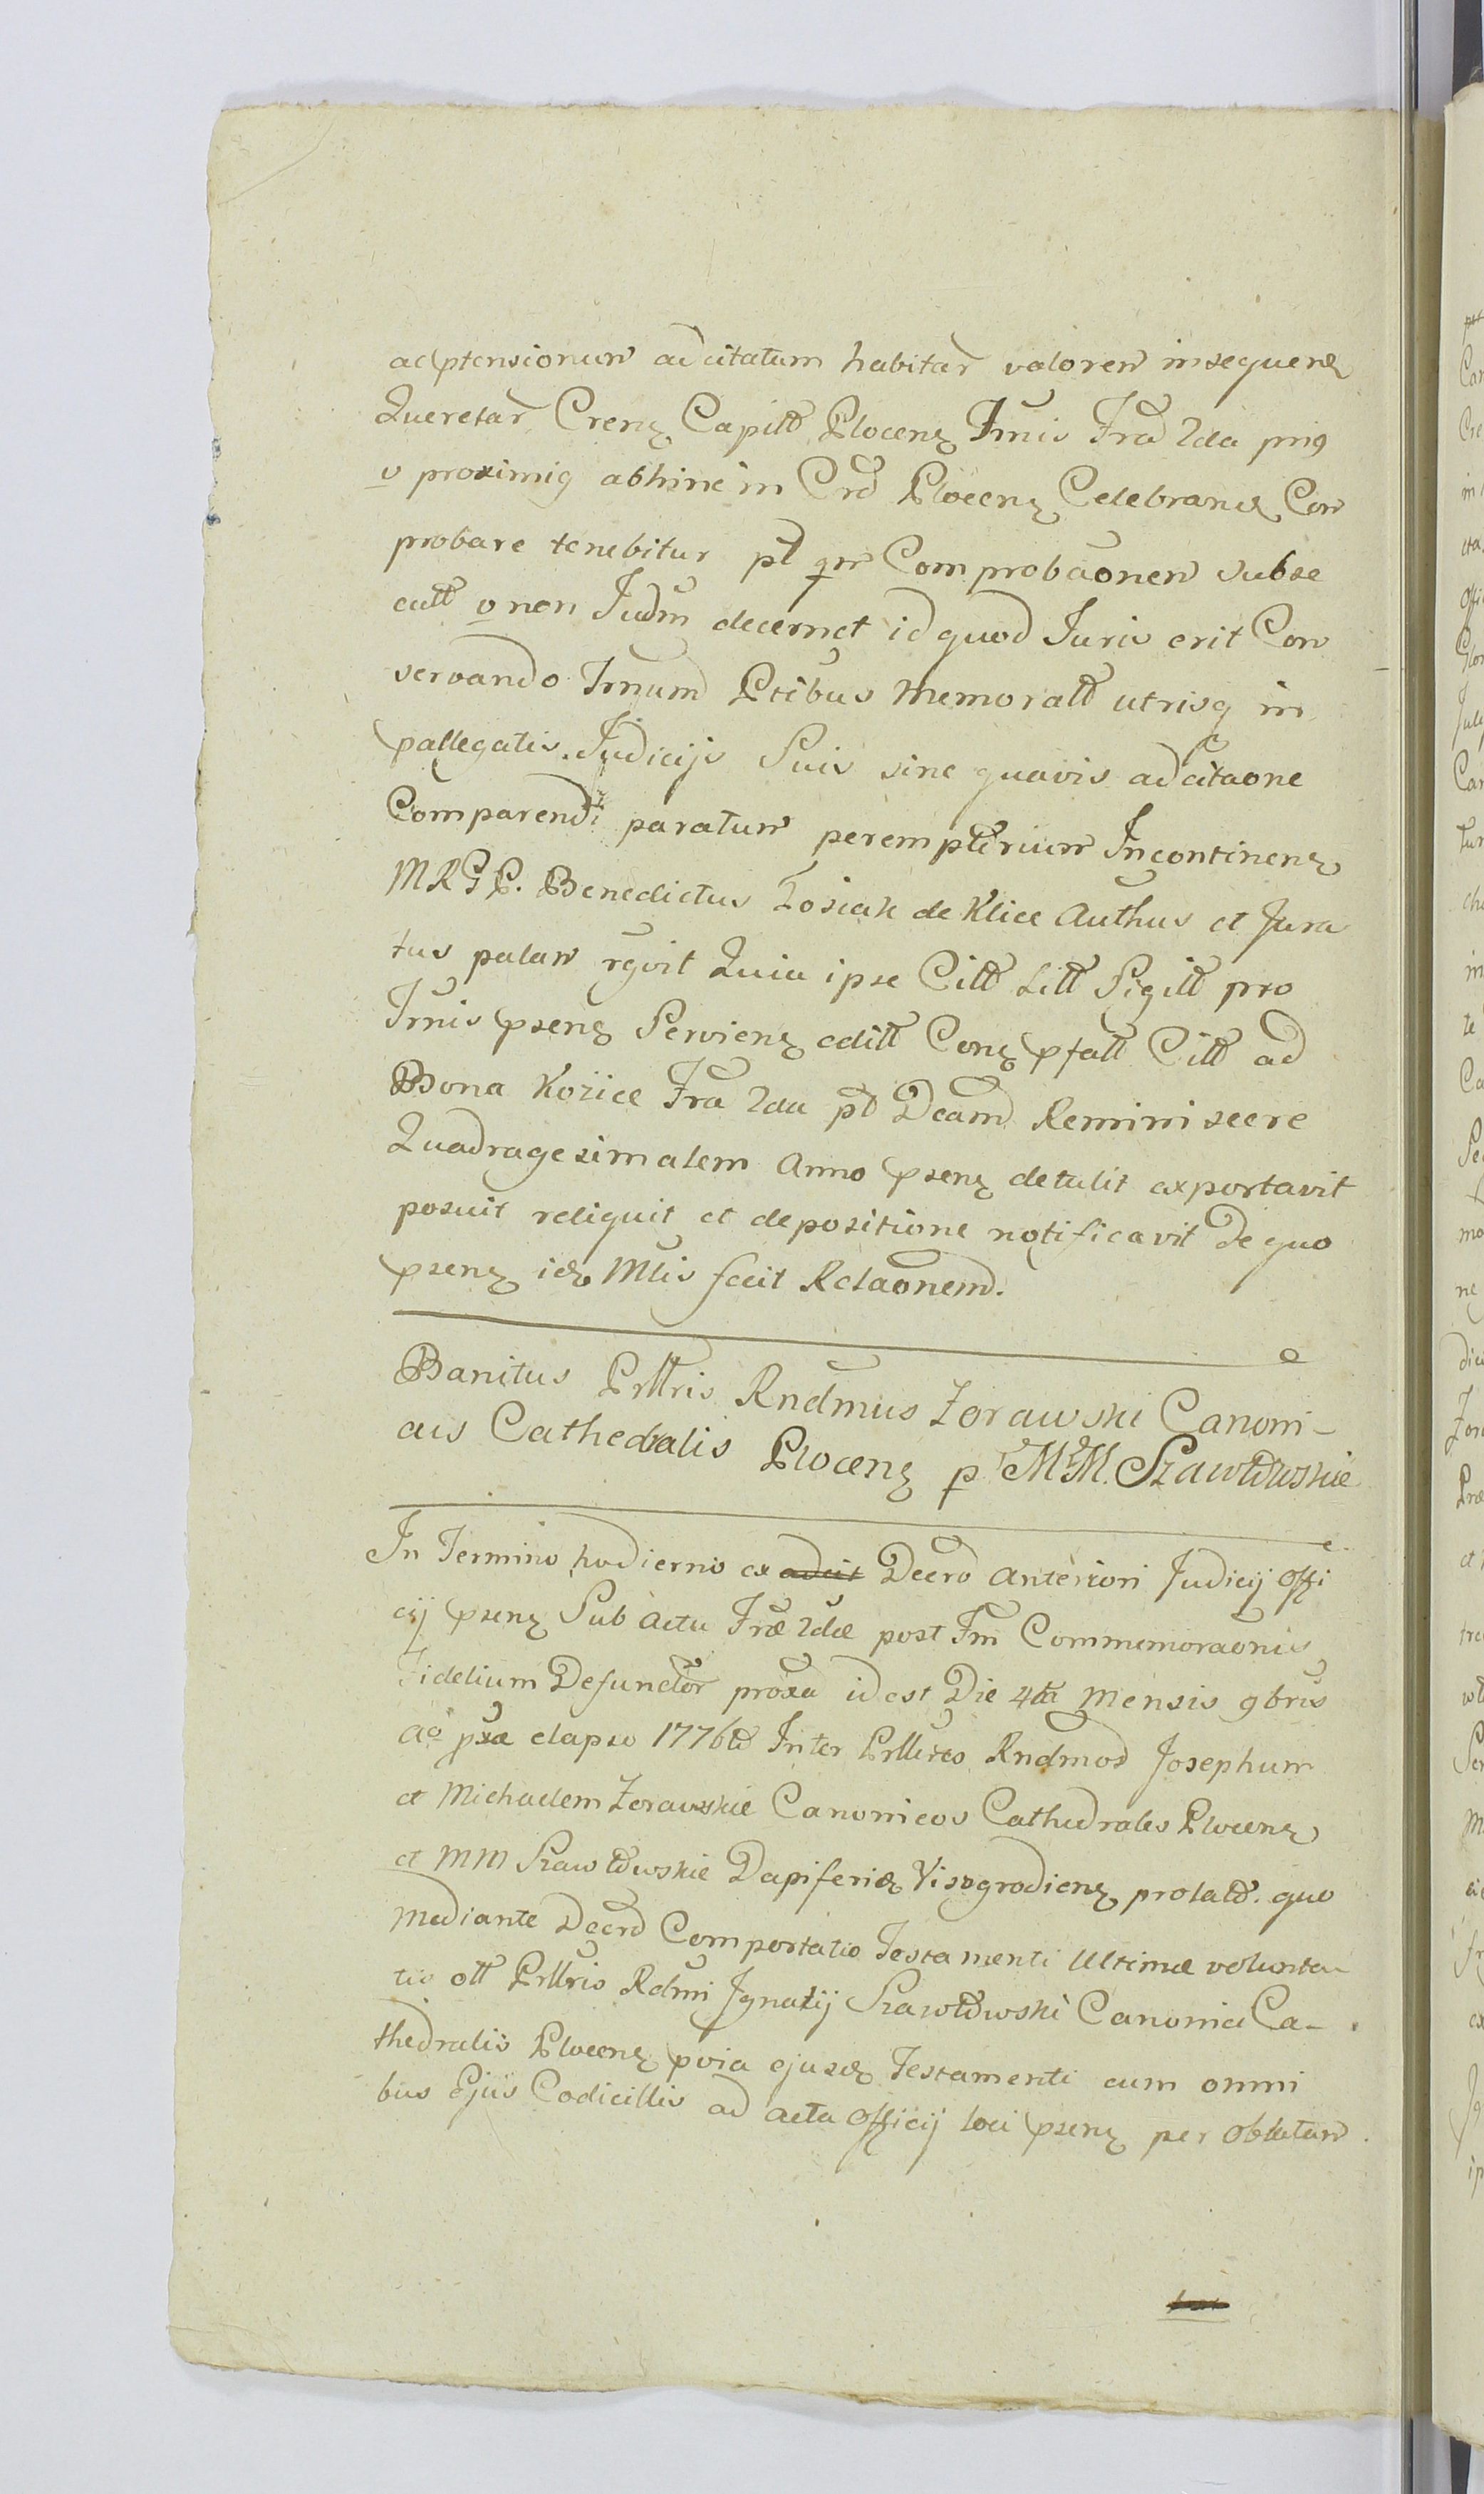 acptensionum ad citatum habitar valorem insequenz
Queretar Crenz Capitt Plocenz Trnis Fra 2da prig
v proximig abhinc in Crd Plocenz Celebranz Con
probare tenebitur pt qm Comprobaonem subse
cutt v non Judm decernet id quod Juris erit Con
servando Trnum Ptibus Memoratt utrisq in
pallegatis Judicijs Suis sine quavis adcitaone
Comparendi paratum peremptrium Incontinenz
MRGP. Benedictus Łosiak de Klice Authus et Jura
tus palam rgvit Quia ipse Citt Litt Sigitt pro
Trnis psenz Servienz editt Conz pfatt Citt ad
Bona Kozice Fra 2da pt Dcam Reminiscere
Quadragesimalem Anno psenz detulit exportavit
posuit reliquit et depositione notificavit de quo
psenz idz Mtis fecit Relaonem.
Banitus Prllris Rndmus Zorawski Canoni-
cus Cathedralis Plocenz p MM. Szawłowskie
In Termino hodierno ex adcit Decro anteriori Judicij Offi
cij psenz Sub actu Fræ 2dæ post Fm Commemoraonis
Fidelium Defunctor proxa id est Die 4ta Mensis 9bris
Ao pxæ elapso 1776to Inter Prllres Rndmos Josephum
et Michaelem Zorawskie Canonicos Cathedrales Plocenz
et MM Szawłowskie Dapiferidz Visogrodienz prolato quo
mediante Decro Comportatio Testamenti Ultimæ volunta-
tis ott Prllris Rdmi Ignatij Szawłowski Canonici Ca-
thedralis Plocenz pvia ejusdz Testamenti cum omni
bus Ejus Codicillis ad acta Officij loci psenz per Oblatam